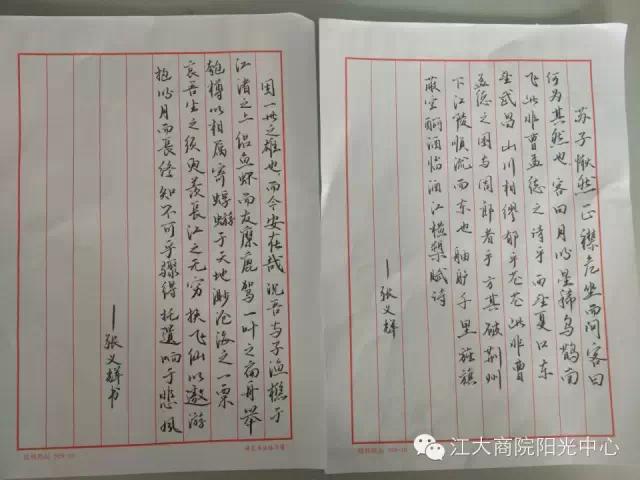 苏子愀然正襟危坐而问客曰
何为其然也客曰月明星稀乌鹊南
飞此非曹孟德之诗乎而望夏口东
望武昌山川相缪郁乎苍苍此非曹
孟德之困与周郎者乎方其破荆州
下江陵顺流而东也舳舻千里旌旗
蔽空酾酒临酒江横槊赋诗
—张义辉
固一世之雄也而今安在哉况吾与子渔樵于
江渚之上侣鱼虾而友麋鹿驾一叶之扁舟举
匏樽以相属寄蜉蝣于天地渺沧海之一粟
哀吾生之须臾羡长江之无穷挟飞仙以遨游
抱明月而长终知不可乎骤得托遗响于悲风
—张义辉书
江大商院阳光中心